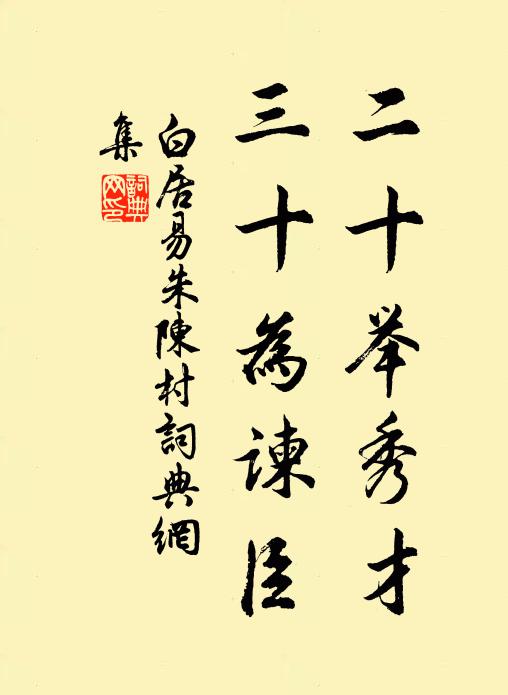 二十举秀才
三十為諫臣
白居易朱陳村詞典網
集
詞典
网印